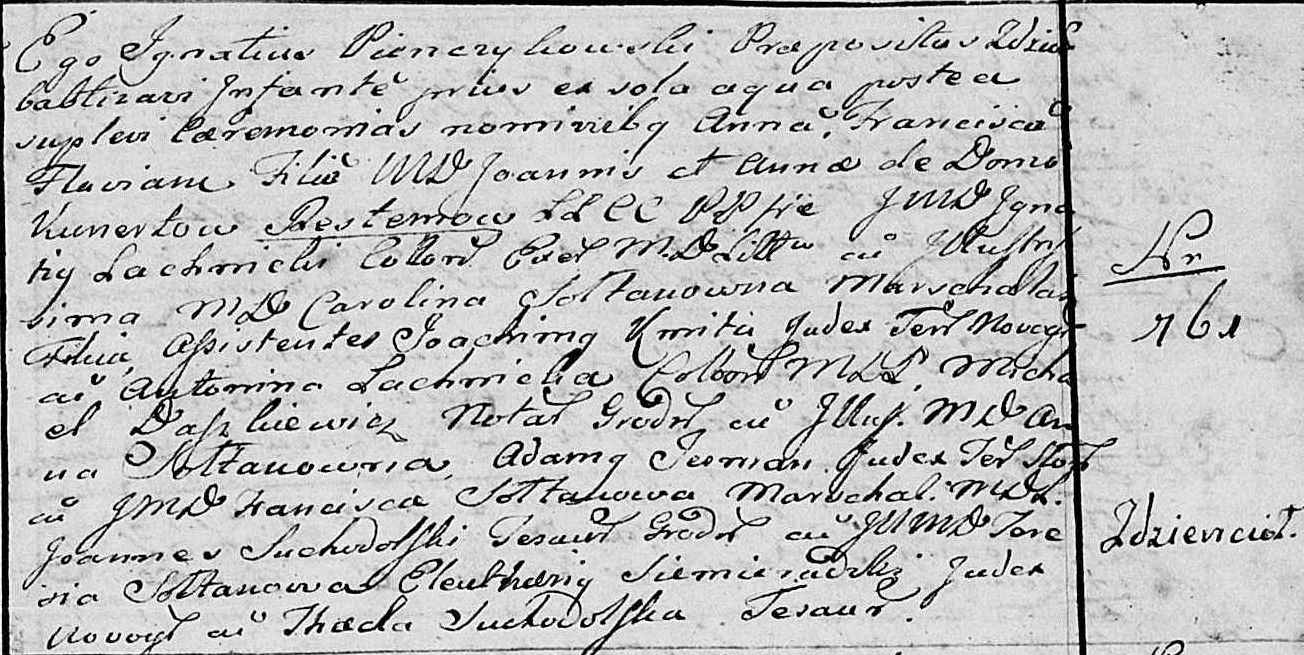 Ego Ignatius Pienczykowski Præpositus Zdzie
babtizavi Infantĕ prius ex sola aqua postea
suplevi Cæremonias nominibq Annā, Franciscā
Flavianā Filiā MD Joannis et Annæ de Domo
Kunertow Restemow LL CC PP fñe JMD Igna
tiq Lachnicki Collon Exer M.D.Litt cū Illustris
sima MD Carolina Sołtanowna Marschalla
Filia, Assistentes Joachimq Kmita Judex Terr Novogr
cū Antonina Lachnicka Collon MDL, Micha
el Daszkiewicz Notar Grodn cū Illus. MD An
na Sołtanowna, Adamq Jesman Judex Ter Słon
cū JMD Francisca Sołtanowa Marschal. MDL.
Joannes Suchodolski Tesaur Grodn cū JMMD Tere
sia Sołtanowa Eleutheriq Siemieradzki Judex
Novogr cū Thæcla Suchodolska Tesaur.
Nr
761
Zdziencioł.